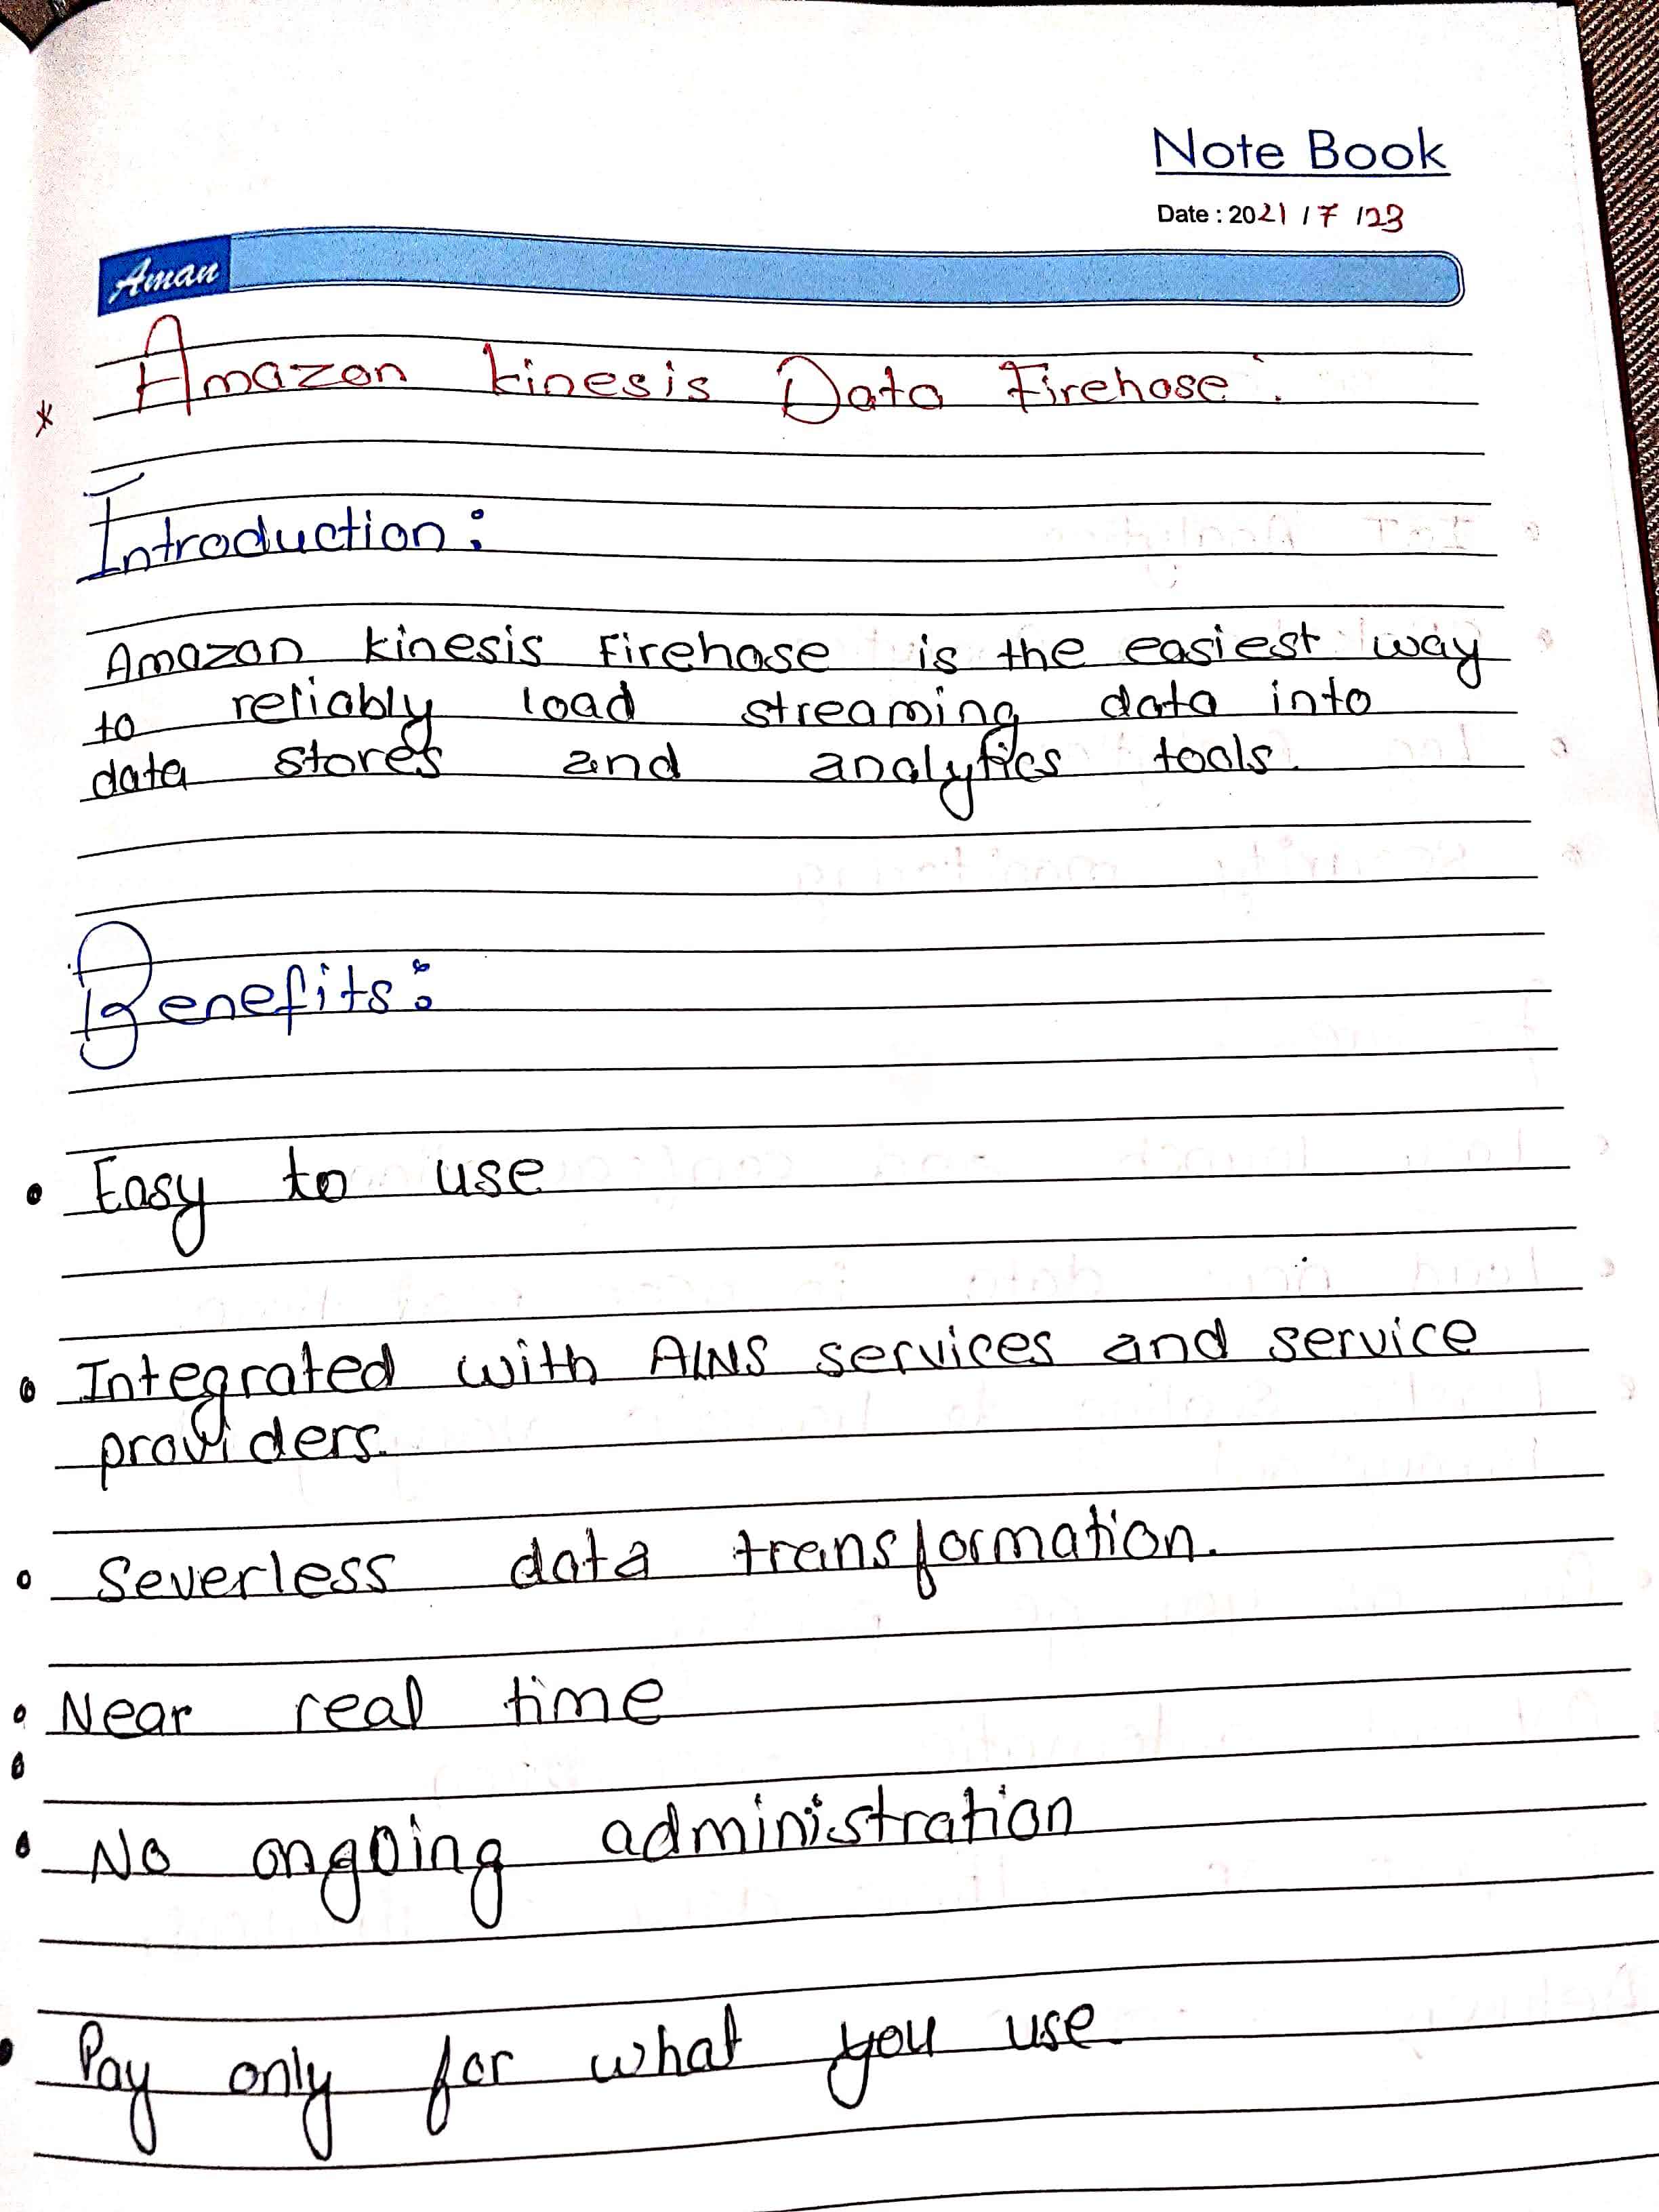 Note Book
Date : 2021 / 7 / 23
Aman
* Amazon kinesis Data Firehose :
Introduction :
Amazon kinesis Firehose is the easiest way
to reliably load streaming data into
data stores and analytics tools.
Benefits :
• Easy to use
• Integrated with AWS services and service
providers.
• Severless data transformation.
• Near real time
•
• No ongoing administration
• Pay only for what you use.